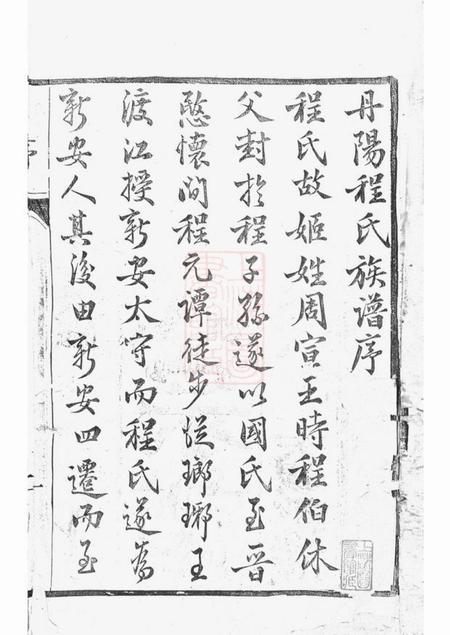 丹陽程氏族譜序
程氏故姬姓周宣王時程伯休
父封於程子孫遂以國氏至晉
愍懷間程元譚徒步從瑯琊王
渡江授新安太守而程氏遂為
新安人其後由新安四遷而至